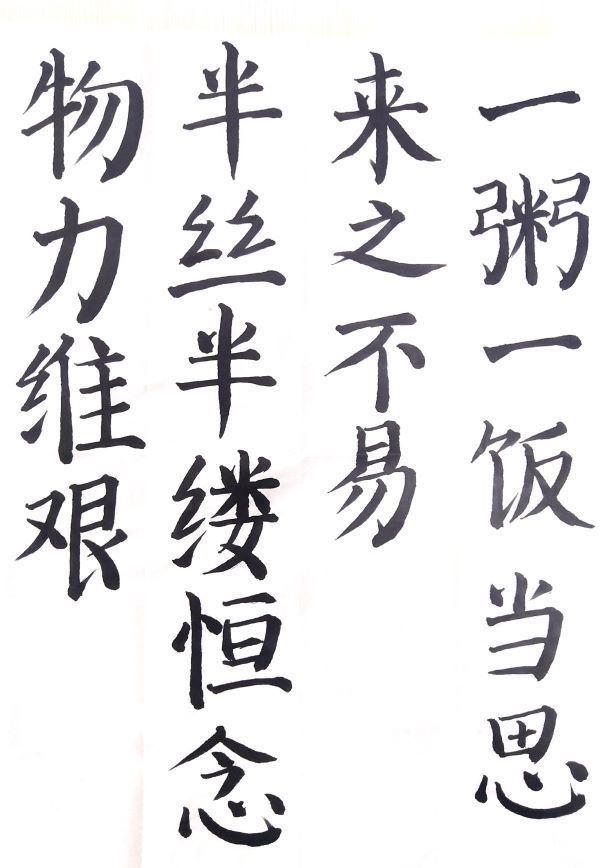 一粥一饭当思
来之不易
半丝半缕恒念
物力维艰